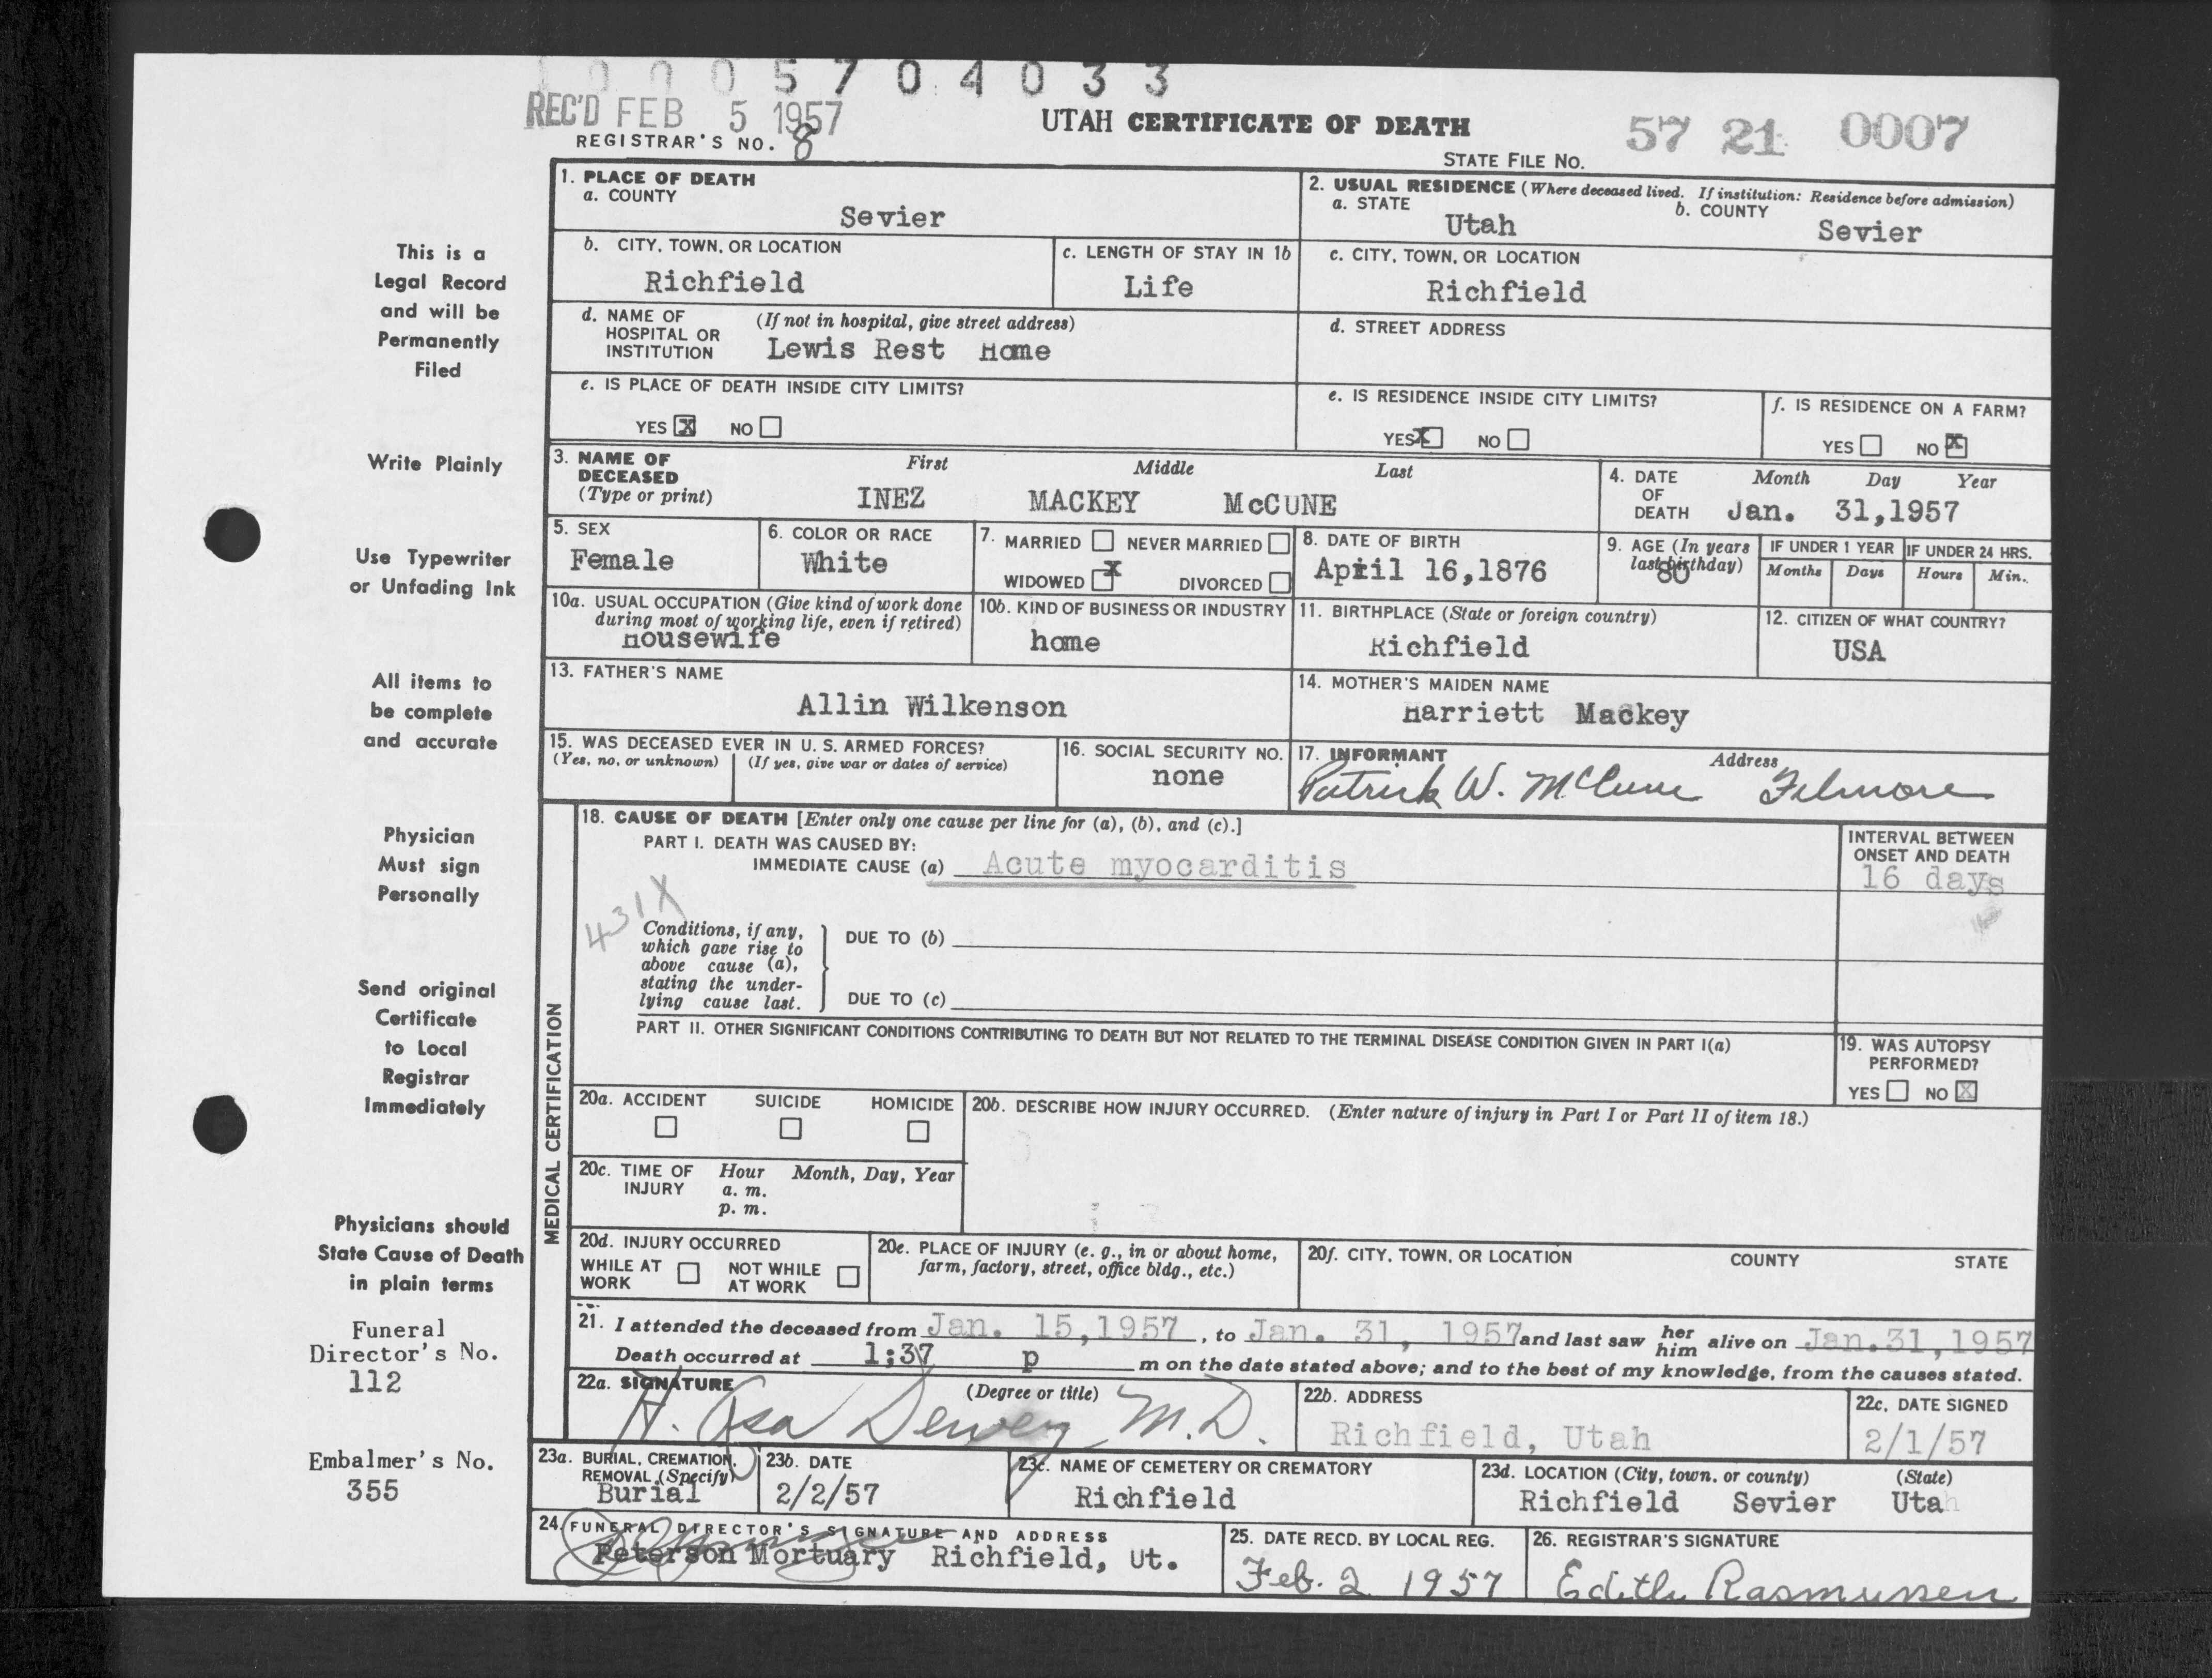 1 0 0 0 5 7 0 4 0 3 3
REC'D FEB 5 1957
UTAH CERTIFICATE OF DEATH
57 21 0007
REGISTRAR'S NO. 8
STATE FILE NO.
This is a
Legal Record
and will be
Permanently
Filed
Write Plainly
Use Typewriter
or Unfading Ink
All items to
be complete
and accurate
Physician
Must sign
Personally
Send original
Certificate
to Local
Registrar
Immediately
Physicians should
State Cause of Death
in plain terms
Funeral
Director's No.
112
Embalmer's No.
355
1. PLACE OF DEATH
a. COUNTY
Sevier
2. USUAL RESIDENCE (Where deceased lived. If institution: Residence before admission)
a. STATE
Utah
b. COUNTY
Sevier
b. CITY, TOWN, OR LOCATION
Richfield
c. LENGTH OF STAY IN 1b
Life
c. CITY, TOWN, OR LOCATION
Richfield
d. NAME OF HOSPITAL OR INSTITUTION
(If not in hospital, give street address)
Lewis Rest Home
d. STREET ADDRESS
e. IS PLACE OF DEATH INSIDE CITY LIMITS?
YES X NO
e. IS RESIDENCE INSIDE CITY LIMITS?
YES X NO
f. IS RESIDENCE ON A FARM?
YES NO X
3. NAME OF DECEASED
(Type or print)
First Middle Last
INEZ MACKEY McCUNE
4. DATE OF DEATH
Month Day Year
Jan. 31,1957
5. SEX
Female
6. COLOR OR RACE
White
7. MARRIED NEVER MARRIED
WIDOWED X DIVORCED
8. DATE OF BIRTH
April 16,1876
9. AGE (In years last birthday)
80
IF UNDER 1 YEAR
Months Days
IF UNDER 24 HRS.
Hours Min.
10a. USUAL OCCUPATION (Give kind of work done
during most of working life, even if retired)
Housewife
10b. KIND OF BUSINESS OR INDUSTRY
home
11. BIRTHPLACE (State or foreign country)
Richfield
12. CITIZEN OF WHAT COUNTRY?
USA
13. FATHER'S NAME
Allin Wilkenson
14. MOTHER'S MAIDEN NAME
Harriett Mackey
15. WAS DECEASED EVER IN U. S. ARMED FORCES?
(Yes, no, or unknown) (If yes, give war or dates of service)
16. SOCIAL SECURITY NO.
none
17. INFORMANT Address
Patrick W. McCune Filmore
MEDICAL CERTIFICATION
18. CAUSE OF DEATH [Enter only one cause per line for (a), (b), and (c).]
PART I. DEATH WAS CAUSED BY:
IMMEDIATE CAUSE (a) Acute myocarditis
INTERVAL BETWEEN
ONSET AND DEATH
16 days
431X
Conditions, if any,
which gave rise to
above cause (a),
stating the under-
lying cause last.
DUE TO (b)
DUE TO (c)
PART II. OTHER SIGNIFICANT CONDITIONS CONTRIBUTING TO DEATH BUT NOT RELATED TO THE TERMINAL DISEASE CONDITION GIVEN IN PART I(a)
19. WAS AUTOPSY
PERFORMED?
YES NO X
20a. ACCIDENT SUICIDE HOMICIDE
20b. DESCRIBE HOW INJURY OCCURRED. (Enter nature of injury in Part I or Part II of item 18.)
20c. TIME OF INJURY
Hour Month, Day, Year
a. m.
p. m.
20d. INJURY OCCURRED
WHILE AT WORK NOT WHILE AT WORK
20e. PLACE OF INJURY (e. g., in or about home,
farm, factory, street, office bldg., etc.)
20f. CITY, TOWN, OR LOCATION COUNTY STATE
21. I attended the deceased from Jan. 15,1957, to Jan. 31, 1957 and last saw her him alive on Jan.31,1957
Death occurred at 1;37 p m on the date stated above; and to the best of my knowledge, from the causes stated.
22a. SIGNATURE (Degree or title)
H. Asa Dewey M.D.
22b. ADDRESS
Richfield, Utah
22c. DATE SIGNED
2/1/57
23a. BURIAL, CREMATION,
REMOVAL (Specify)
Burial
23b. DATE
2/2/57
23c. NAME OF CEMETERY OR CREMATORY
Richfield
23d. LOCATION (City, town, or county) (State)
Richfield Sevier Utah
24. FUNERAL DIRECTOR'S SIGNATURE AND ADDRESS
Peterson Mortuary Richfield, Ut.
25. DATE RECD. BY LOCAL REG.
Feb. 2 1957
26. REGISTRAR'S SIGNATURE
Edith Rasmussen